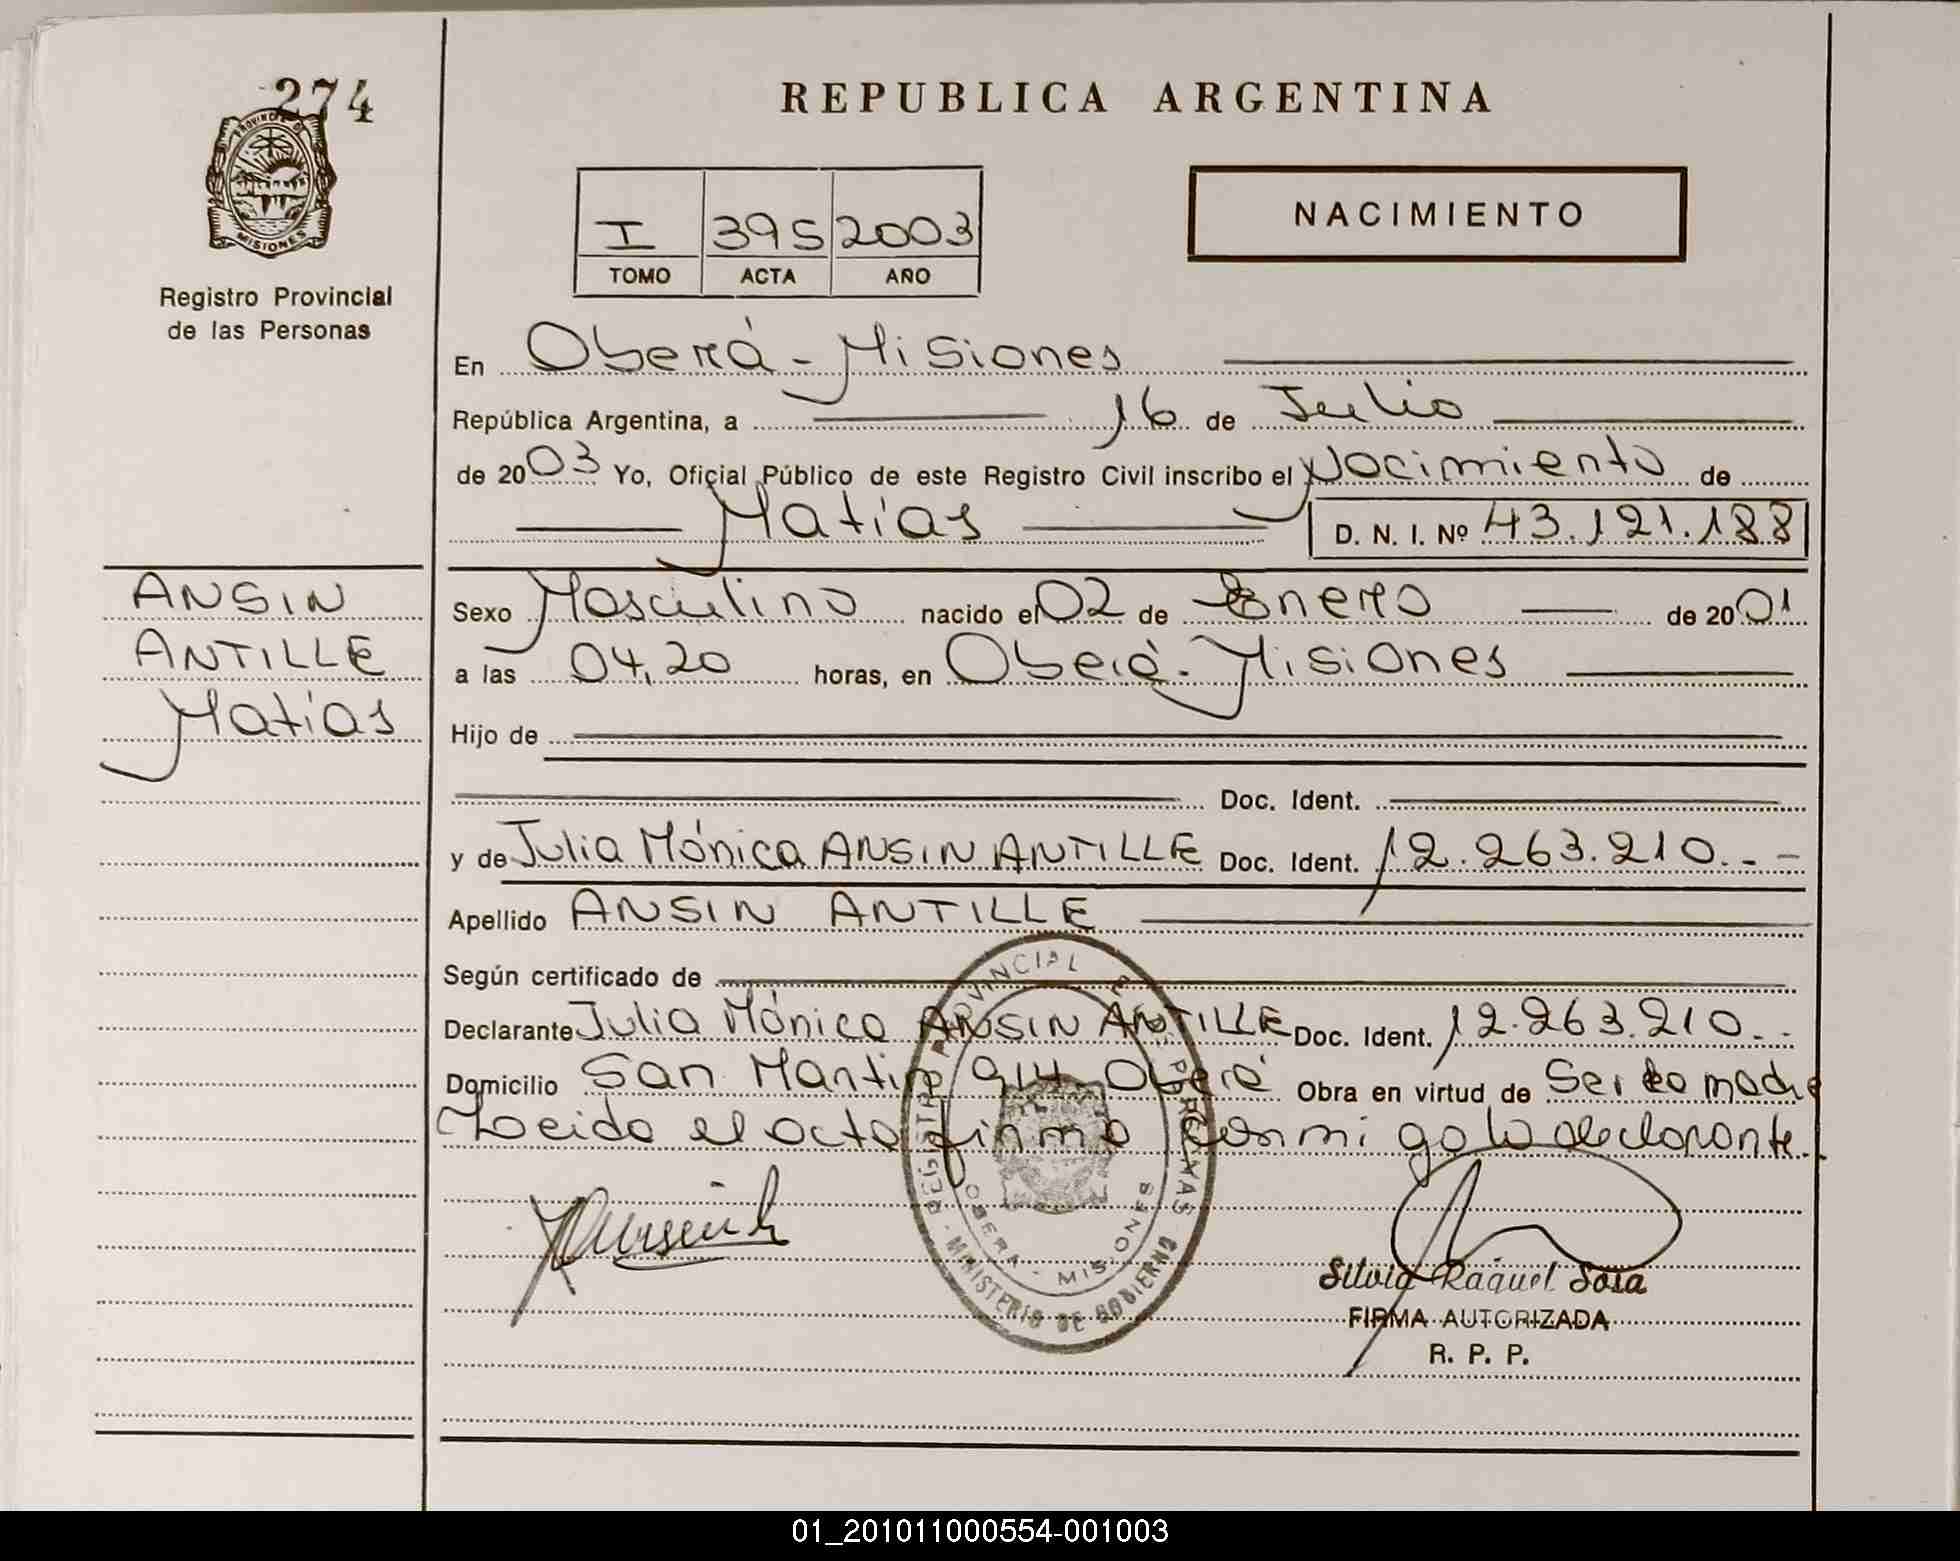 274
PROVINCIA DE
MISIONES
Registro Provincial
de las Personas
ANSIN
ANTILLE
Matías
REPUBLICA ARGENTINA
I 395 2003
TOMO ACTA AÑO
NACIMIENTO
En Oberá - Misiones
República Argentina, a 16 de Julio
de 2003 Yo, Oficial Público de este Registro Civil inscribo el Nacimiento de
Matías D. N. I. Nº 43.121.188
Sexo Masculino nacido el 02 de Enero de 2001
a las 04,20 horas, en Oberá - Misiones
Hijo de
Doc. Ident.
y de Julia Mónica ANSIN ANTILLE Doc. Ident. 12.263.210.--
Apellido ANSIN ANTILLE
Según certificado de
Declarante Julia Mónica ANSIN ANTILLE Doc. Ident. 12.263.210.--
Domicilio San Martin 914 - Oberá Obra en virtud de Ser la madre
Leida el acta firma conmigo la declarante.
REGISTRO PROVINCIAL DE LAS PERSONAS - MINISTERIO DE GOBIERNO
OBERA - MISIONES
Silvia Raquel Sosa
FIRMA AUTORIZADA
R. P. P.
01_201011000554-001003